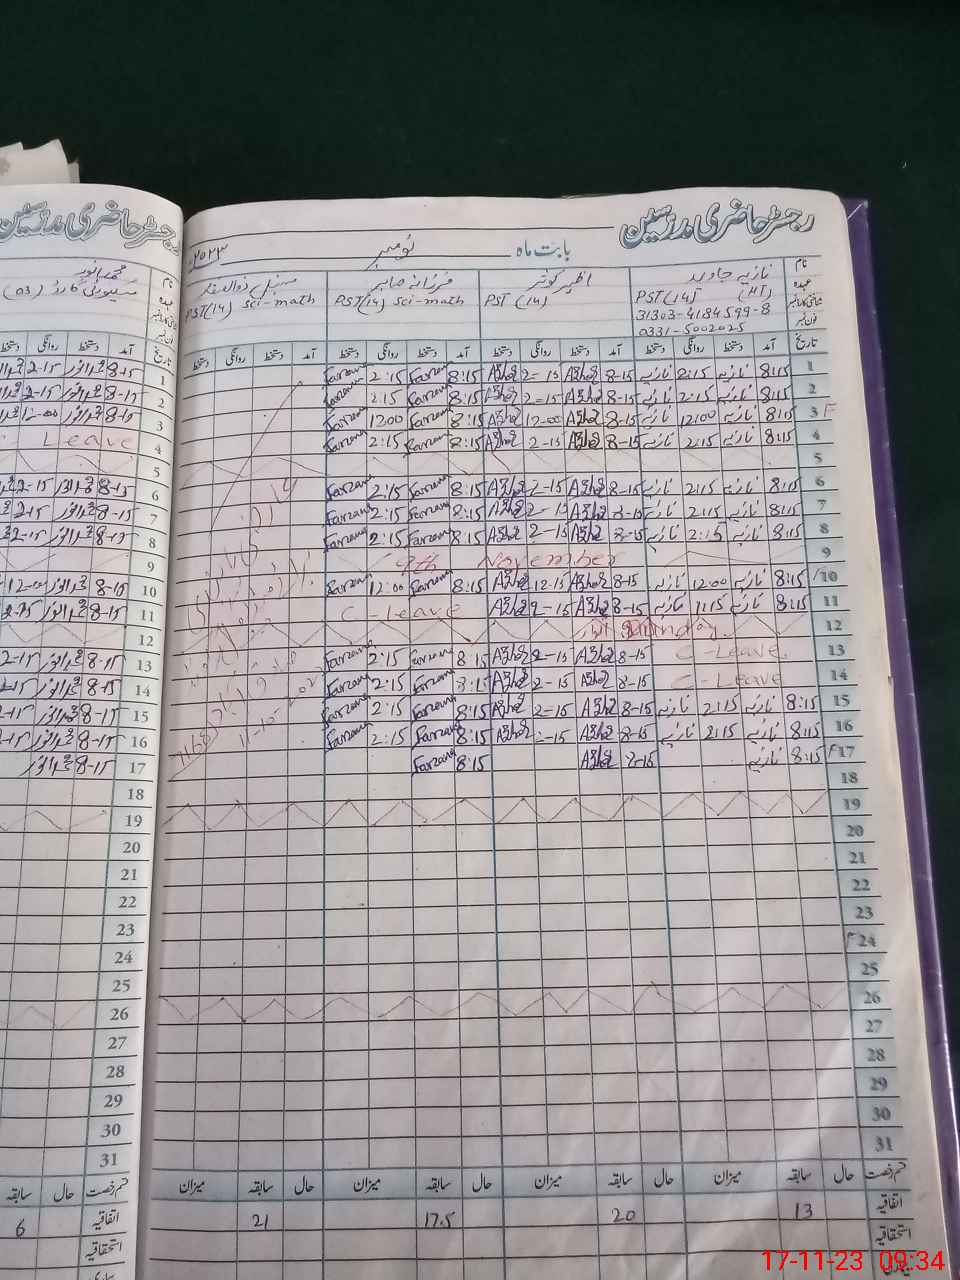 رجسٹر حاضری مدرسین
رجسٹر حاضری مدرسین
بابت ماہ نومبر ۲۰۲۳
نام نازیہ جاوید اظہر کوثر فرزانہ صابر
عہدہ PST(14) (HT) PST (14) PST(14) Sci-math PST(14) Sci-math
31303-4184599-8
0331-5002025
نام محمد انور
تاریخ آمد دستخط روانگی دستخط آمد دستخط روانگی دستخط آمد دستخط روانگی دستخط آمد دستخط روانگی دستخط
1 8:15 نازیہ 2:15 نازیہ 8-15 Azhar 2-15 Azhar 8:15 Farzana 2:15 Farzana
2 8:15 نازیہ 2:15 نازیہ 8-15 Azhar 2-15 Azhar 8:15 Farzana 2:15 Farzana
3 F 8:15 نازیہ 12:00 نازیہ 8-15 Azhar 12-00 Azhar 8:15 Farzana 12:00 Farzana
4 8:15 نازیہ 2:15 نازیہ 8-15 Azhar 2-15 Azhar 8:15 Farzana 2:15 Farzana
5
6 8:15 نازیہ 2:15 نازیہ 8-15 Azhar 2-15 Azhar 8:15 Farzana 2:15 Farzana
7 8:15 نازیہ 2:15 نازیہ 8-15 Azhar 2-15 Azhar 8:15 Farzana 2:15 Farzana
8 8:15 نازیہ 2:15 نازیہ 8-15 Azhar 2-15 Azhar 8:15 Farzana 2:15 Farzana
9 9th November
10 8:15 نازیہ 12:00 نازیہ 8-15 Azhar 12-15 Azhar 8:15 Farzana 12:00 Farzana
11 8:15 نازیہ 1:15 نازیہ 8-15 Azhar 2-15 Azhar C-Leave
12 اتوار Sunday
13 C-Leave 8-15 Azhar 2-15 Azhar 8:15 Farzana 2:15 Farzana
14 C-Leave 8-15 Azhar 2-15 Azhar 8:15 Farzana 2:15 Farzana
15 8:15 نازیہ 2:15 نازیہ 8-15 Azhar 2-15 Azhar 8:15 Farzana 2:15 Farzana
16 8:15 نازیہ 2:15 نازیہ 8-15 Azhar 2-15 Azhar 8:15 Farzana 2:15 Farzana
F 17 8:15 نازیہ 8-15 Azhar 8:15 Farzana
18
19
20
21
22
23
F 24
25
26
27
28
29
30
31
قسم رخصت حال سابقہ میزان حال سابقہ میزان حال سابقہ میزان حال سابقہ میزان
اتفاقیہ 13 20 17.5 21
استحقاقیہ
تاریخ آمد دستخط روانگی دستخط
1 8-15 محمد انور 2-15
2 8-15 محمد انور 2-15
3 8-15 محمد انور 12-00
4 Leave
5
6 8-15 محمد انور 2-15
7 8-15 محمد انور 2-15
8 8-15 محمد انور 2-15
9
10 8-15 محمد انور 12-00
11 8-15 محمد انور 2-15
12
13 8-15 محمد انور 2-15
14 8-15 محمد انور 2-15
15 8-15 محمد انور 2-15
16 8-15 محمد انور 2-15
17 8-15 محمد انور
18
19
20
21
22
23
24
25
26
27
28
29
30
31
قسم رخصت حال سابقہ
اتفاقیہ 6
استحقاقیہ
17-11-23 09:34